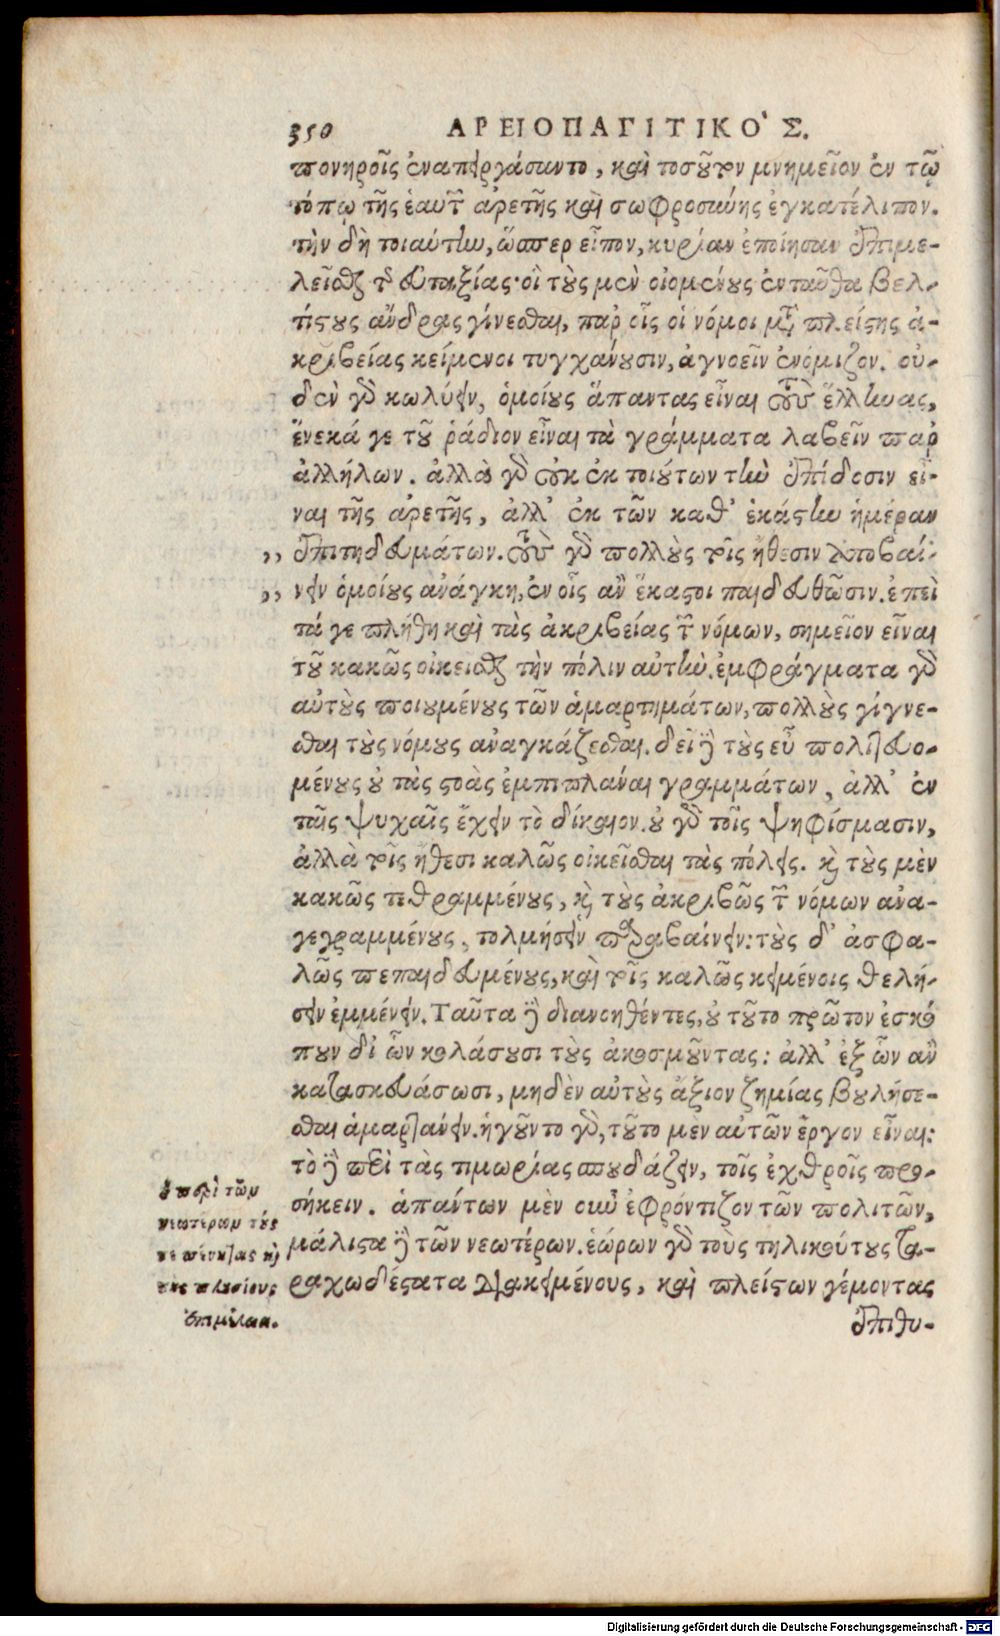 350 ΑΡΕΙΟΠΑΓΙΤΙΚΟ Σ.
πονηροῖς ἐναπειργάσαντο, καὶ τοσοῦτον μνημεῖον ἐν τῷ
τόπῳ τῆς ἑαυτῶν ἀρετῆς καὶ σωφροσύνης ἐγκατέλιπον.
τὴν δὴ τοιαύτην, ὥσπερ εἶπον, κυρίαν ἐποίησαν ἐπιμε-
λεῖσθαι τῆς εὐταξίας· οἳ τοὺς μὲν οἰομένους ἐνταῦθα βελ-
τίστους ἄνδρας γίνεσθαι, παρ οἷς οἱ νόμοι μετὰ πλείστης ἀ-
κριβείας κείμενοι τυγχάνουσιν, ἀγνοεῖν ἐνόμιζον. οὐ-
δὲν γὰρ κωλύειν, ὁμοίους ἅπαντας εἶναι τοὺς ἕλληνας,
ἕνεκά γε τοῦ ῥάδιον εἶναι τὰ γράμματα λαβεῖν παρ
ἀλλήλων. ἀλλὰ γὰρ οὐκ ἐκ τούτων τὴν ἐπίδοσιν εἶ-
ναι τῆς ἀρετῆς, ἀλλ᾿ ἐκ τῶν καθ᾿ ἑκάστην ἡμέραν
,, ἐπιτηδευμάτων. τοὺς γὰρ πολλοὺς τοῖς ἤθεσιν ἀποβαί-
,, νειν ὁμοίους ἀνάγκη, ἐν οἷς ἂν ἕκαστοι παιδευθῶσιν. ἐπεὶ
τά γε πλήθη καὶ τὰς ἀκριβείας τῶν νόμων, σημεῖον εἶναι
τοῦ κακῶς οἰκεῖσθαι τὴν πόλιν αὐτήν. ἐμφράγματα γὰρ
αὐτοὺς ποιουμένους τῶν ἁμαρτημάτων, πολλοὺς γίγνε-
σθαι τοὺς νόμους ἀναγκάζεσθαι. δεῖ δὲ τοὺς εὖ πολιτευο-
μένους οὐ τὰς στοὰς ἐμπιπλάναι γραμμάτων, ἀλλ᾿ ἐν
ταῖς ψυχαῖς ἔχειν τὸ δίκαιον. οὐ γὰρ τοῖς ψηφίσμασιν,
ἀλλὰ τοῖς ἤθεσι καλῶς οἰκεῖσθαι τὰς πόλεις. καὶ τοὺς μὲν
κακῶς τεθραμμένους, καὶ τοὺς ἀκριβῶς τῶν νόμων ἀνα-
γεγραμμένους, τολμήσειν παραβαίνειν: τοὺς δ᾿ ἀσφα-
λῶς πεπαιδευμένους, καὶ τοῖς καλῶς κειμένοις θελή-
σειν ἐμμένειν. Ταῦτα δὲ διανοηθέντες, οὐ τοῦτο πρῶτον ἐσκό
πουν δι᾿ ὧν κολάσουσι τοὺς ἀκοσμοῦντας: ἀλλ᾿ ἐξ ὧν ἂν
κατασκευάσωσι, μηδὲν αὐτοὺς ἄξιον ζημίας βουλήσε-
σθαι ἁμαρτάνειν. ἡγοῦντο γὰρ, τοῦτο μὲν αὐτῶν ἔργον εἶναι:
τὸ δὲ περὶ τὰς τιμωρίας σπουδάζειν, τοῖς ἐχθροῖς προ-
σήκειν. ἁπάντων μὲν οὖν ἐφρόντιζον τῶν πολιτῶν,
μάλιστα δὲ τῶν νεωτέρων. ἑώρων γὰρ τοὺς τηλικούτους τα-
ραχωδέστατα διακειμένους, καὶ πλείστων γέμοντας
ἐπιθυ-
ἡ περὶ τῶν
νεωτέρων τούς
πένητας καὶ
τοὺς πλουσίους
ἐπιμέλεια.
Digitalisierung gefördert durch die Deutsche Forschungsgemeinschaft - DFG